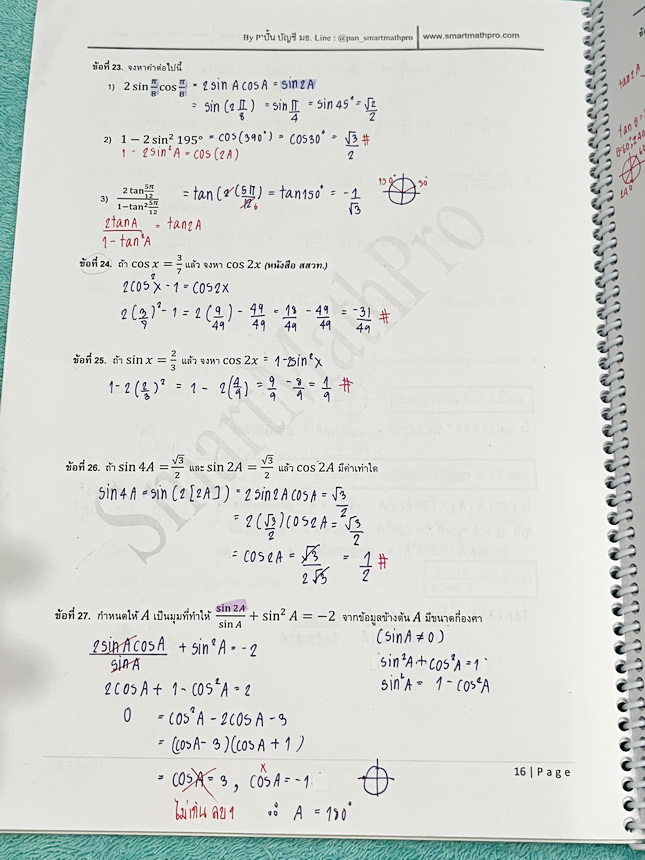 By P'ปั้น บัญชี มธ. Line : @pan_smartmathpro | www.smartmathpro.com
ข้อที่ 23. จงหาค่าต่อไปนี้
1) 2 sin π/8 cos π/8 = 2sin A cosA = sin2A
= sin (2 π/8) = sin π/4 = sin 45° = √2/2
2) 1 − 2 sin² 195° = cos(390°) = cos30° = √3/2 #
1 - 2sin²A = cos(2A)
3) 2 tan 5π/12 / 1−tan² 5π/12 = tan(2(5π/12)) 6 = tan150° = -1/√3 150° 30°
2tanA / 1 - tan²A = tan2A
ข้อที่ 24. ถ้า cos x = 3/7 แล้ว จงหา cos 2x (หนังสือ สสวท.)
2cos²x - 1 = cos2x
2(3/7)² - 1 = 2(9/49) - 49/49 = 18/49 - 49/49 = -31/49 #
ข้อที่ 25. ถ้า sin x = 2/3 แล้ว จงหา cos 2x = 1-2sin²x
1-2(2/3)² = 1 - 2(4/9) = 9/9 - 8/9 = 1/9 #
ข้อที่ 26. ถ้า sin 4A = √3/2 และ sin 2A = √3/2 แล้ว cos 2A มีค่าเท่าใด
sin4A = sin(2[2A]) = 2sin2AcosA = √3/2
= 2(√3/2)cos2A = √3/2
= cos2A = √3/2√3 = 1/2 #
ข้อที่ 27. กำหนดให้ A เป็นมุมที่ทำให้ sin 2A/sin A + sin² A = −2 จากข้อมูลข้างต้น A มีขนาดกี่องศา
2sinAcosA/sinA + sin²A = -2 (sinA ≠ 0)
sin²A + cos²A = 1
2cosA + 1 - cos²A = 2 sin²A = 1 - cos²A
0 = cos²A - 2cosA - 3
= (cosA - 3)(cosA + 1)
= cosA = 3, cosA = -1
ไม่เกิน ลบ 1 ∴ A = 180°
16 | P a g e
SmartMathPro